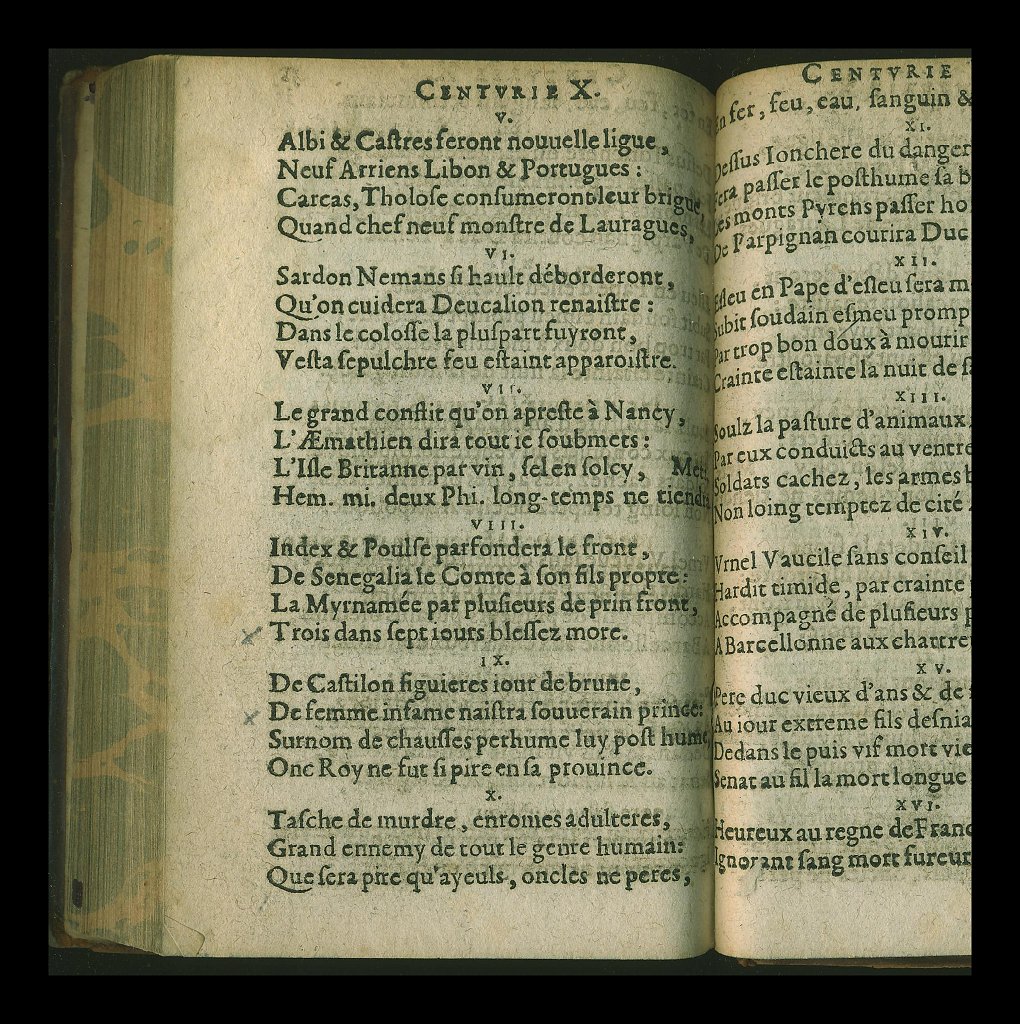 CENTVRIE X.
V.
Albi & Castres feront nouuelle ligue,
Neuf Arriens Libon & Portugues :
Carcas, Tholose consumeront leur brigue,
Quand chef neuf monstre de Lauragues,
VI.
Sardon Nemans si hault déborderont,
Qu'on cuidera Deucalion renaistre :
Dans le colosse la pluspart fuyront,
Vesta sepulchre feu estaint apparoistre.
VII.
Le grand conflit qu'on apreste à Nancy,
L'Æmathien dira tout ie soubmets :
L'Isle Britanne par vin, sel en solcy, Met.
Hem. mi. deux Phi. long-temps ne tiendra
VIII.
Index & Poulse parfondera le front,
De Senegalia le Comte à son fils propre :
La Myrnamée par plusieurs de prin front,
Trois dans sept iours blessez more.
IX.
De Castilon figuieres iour de brune,
De femme infame naistra souuerain prince:
Surnom de chausses perhume luy post hume,
Onc Roy ne fut si pire en sa prouince.
X.
Tasche de murdre, enromes adulteres,
Grand ennemy de tout le genre humain:
Que sera pire qu'ayeuls, oncles ne peres,
CENTVRIE
En fer, feu, eau, sanguin &
XI.
Dessus Ionchere du danger
Fera passer le posthume sa b
Les monts Pyrens passer ho
De Parpignan courira Duc
XII.
Esleu en Pape d'esleu sera m
Subit soudain esmeu promp
Par trop bon doux à mourir
Crainte estainte la nuit de sa
XIII.
Soulz la pasture d'animaux
Par eux conduicts au ventre
Soldats cachez, les armes b
Non loing temptez de cité
XIV.
Vrnel Vaucile sans conseil
Hardit timide, par crainte
Accompagné de plusieurs p
A Barcellonne aux chartre
XV.
Pere duc vieux d'ans & de
Au iour extreme fils desnia
Dedans le puis vif mort vie
Senat au fil la mort longue
XVI.
Heureux au regne de Franc
Ignorant sang mort fureur